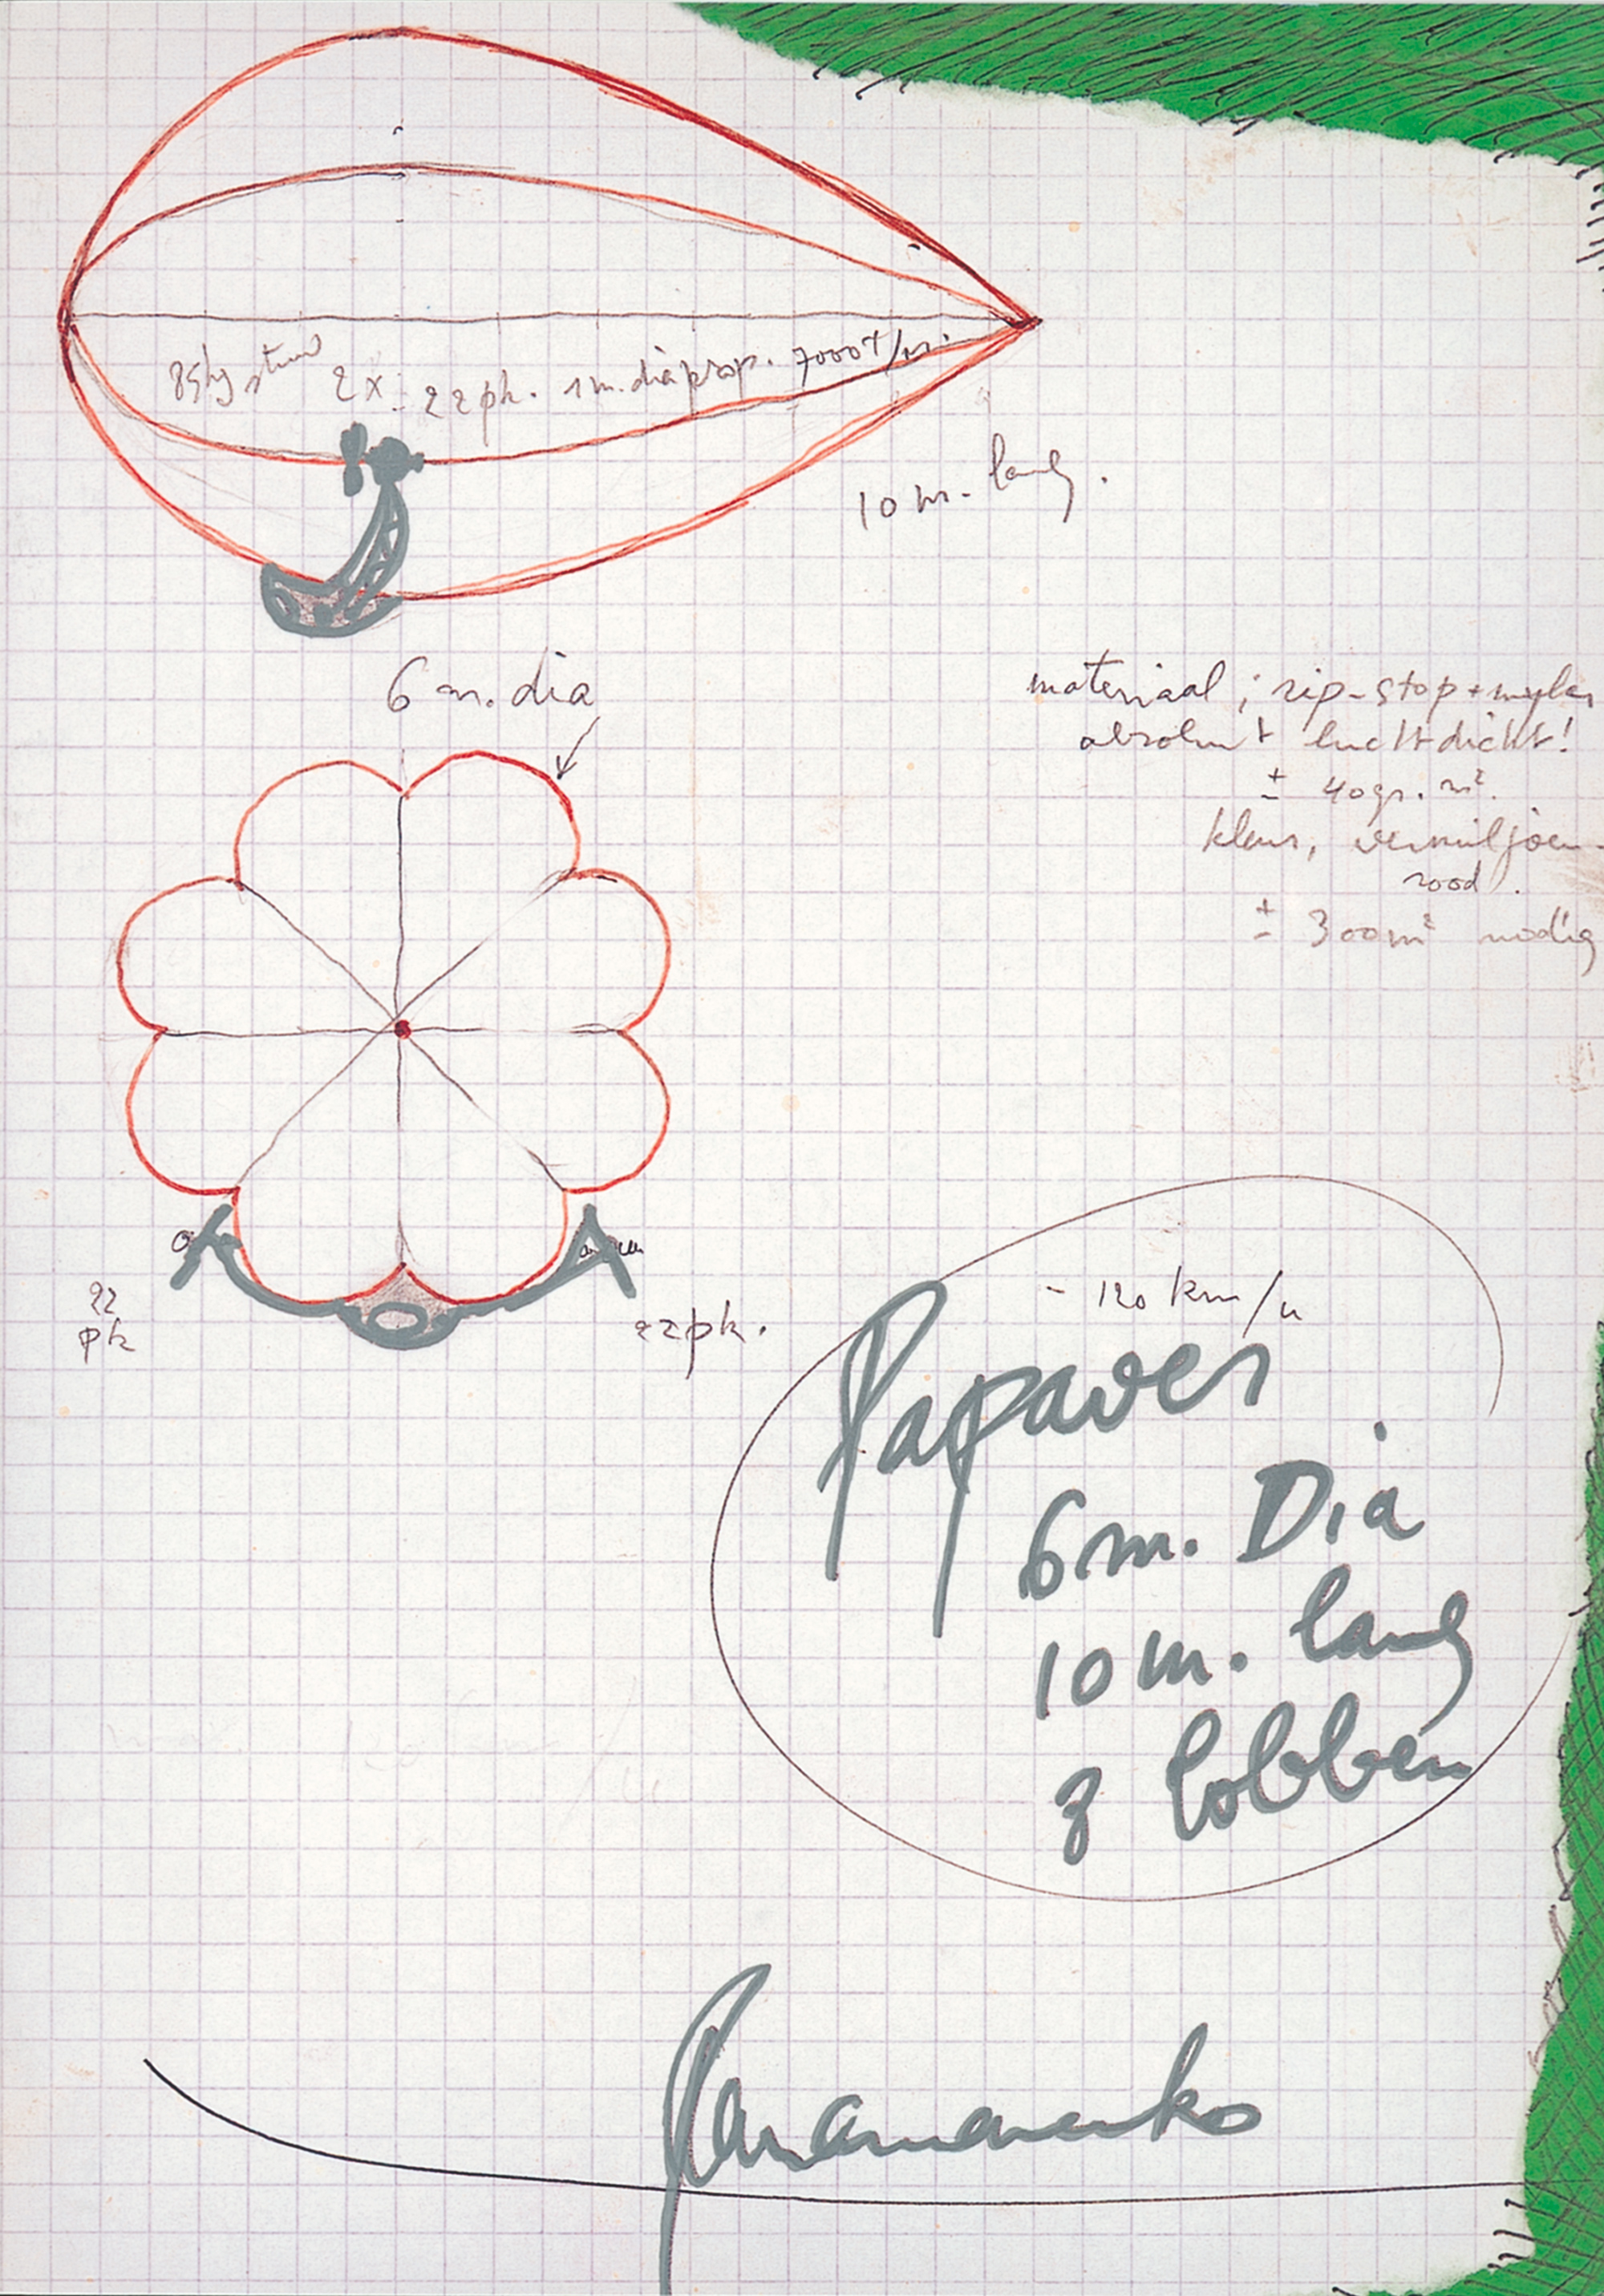 85kg stuw 2x 22pk. 1m. dia prop. 7000t/m.
10 m. lang.
6 m. dia
materiaal ; rip-stop + mylar
absoluut luchtdicht!
± 40gr. m².
kleur, vermiljoen-
rood.
± 300m² nodig
22
pk
22pk.
- 120 km/u
Papaver
6m. Dia
10 m. lang
8 lobben
Panamarenko